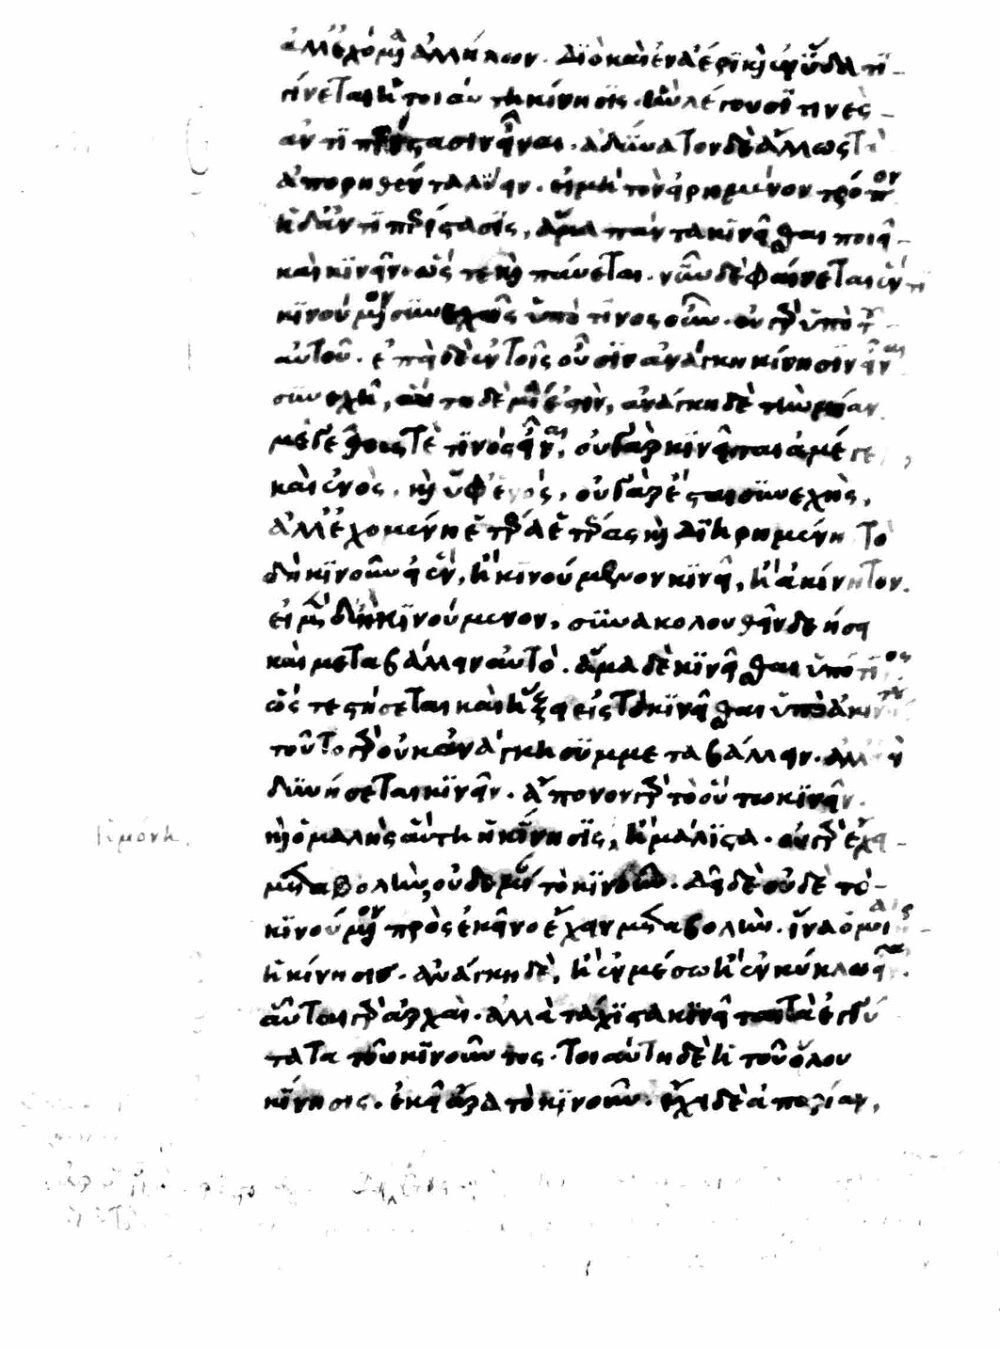 ἀλλ' ἐχομένων ἀλλήλων. διὸ καὶ ἐν ἀέρι καὶ ἐν ὕδατι
γίνεται ἡ τοιαύτη κίνησις. ἣν λέγουσί τινες
ἀντιπερίστασιν εἶναι. ἀδύνατον δὲ ἄλλως τὰ
ἀπορηθέντα λύειν. εἰ μὴ τὸν εἰρημένον τρόπον
ἡ δ' ἀντιπερίστασις, ἅμα πάντα κινεῖσθαι ποιεῖ
καὶ κινεῖν. ὥστε καὶ παύεται. νῦν δὲ φαίνεται ἕν τι
κινούμενον συνεχῶς ὑπὸ τίνος οὖν. οὐ γὰρ ὑπὸ τοῦ
αὐτοῦ. ἐπεὶ δὲ ἐν τοῖς οὖσιν ἀνάγκη κίνησιν εἶναι
συνεχῆ, αὕτη δὲ μία ἐστὶν, ἀνάγκη δὲ τὴν μίαν
μεγέθους τέ τινος εἶναι, οὐ γὰρ κινεῖται ἀμέγε
καὶ ἑνὸς. καὶ ὑφ' ἑνός, οὐ γὰρ ἔσται συνεχὴς,
ἀλλ' ἐχομένη ἑτέρα ἑτέρας καὶ διηρημένη τὸ
δὴ κινοῦν εἰ ἓν, ἢ κινούμενον κινεῖ, ἢ ἀκίνητον.
εἰ μὲν δὴ κινούμενον, συνακολουθεῖν δεήσει
καὶ μεταβάλλειν αὐτὸ. ἅμα δὲ κινεῖσθαι ὑπό τινος
ὥστε στήσεται καὶ ἥξει εἰς τὸ κινεῖσθαι ὑπὸ ἀκινήτου
τοῦτο γὰρ οὐκ ἀνάγκη συμμεταβάλλειν. ἀλλ' ἀεὶ
δυνήσεται κινεῖν. ἄπονον γὰρ τὸ οὕτω κινεῖν.
καὶ ὁμαλὴς αὕτη ἡ κίνησις, ἢ μάλιστα. οὐ γὰρ ἔχει
ἢ μόνη.
μεταβολὴν, οὐδεμίαν τὸ κινοῦν. δεῖ δὲ οὐδὲ τὸ
κινούμενον πρὸς ἐκεῖνο ἔχειν μεταβολὴν. ἵνα ὁμοία ᾖ
ἡ κίνησις. ἀνάγκη δὲ, ἢ ἐν μέσω ἢ ἐν κύκλω εἶναι.
αὗται γὰρ ἀρχαὶ. ἀλλὰ τάχιστα κινεῖται τὰ ἐγγύ
τατα τοῦ κινοῦντος. τοιαύτη δὲ ἡ τοῦ ὅλου
κίνησις. ἐκεῖ ἄρα τὸ κινοῦν. ἔχει δὲ ἀπορίαν,